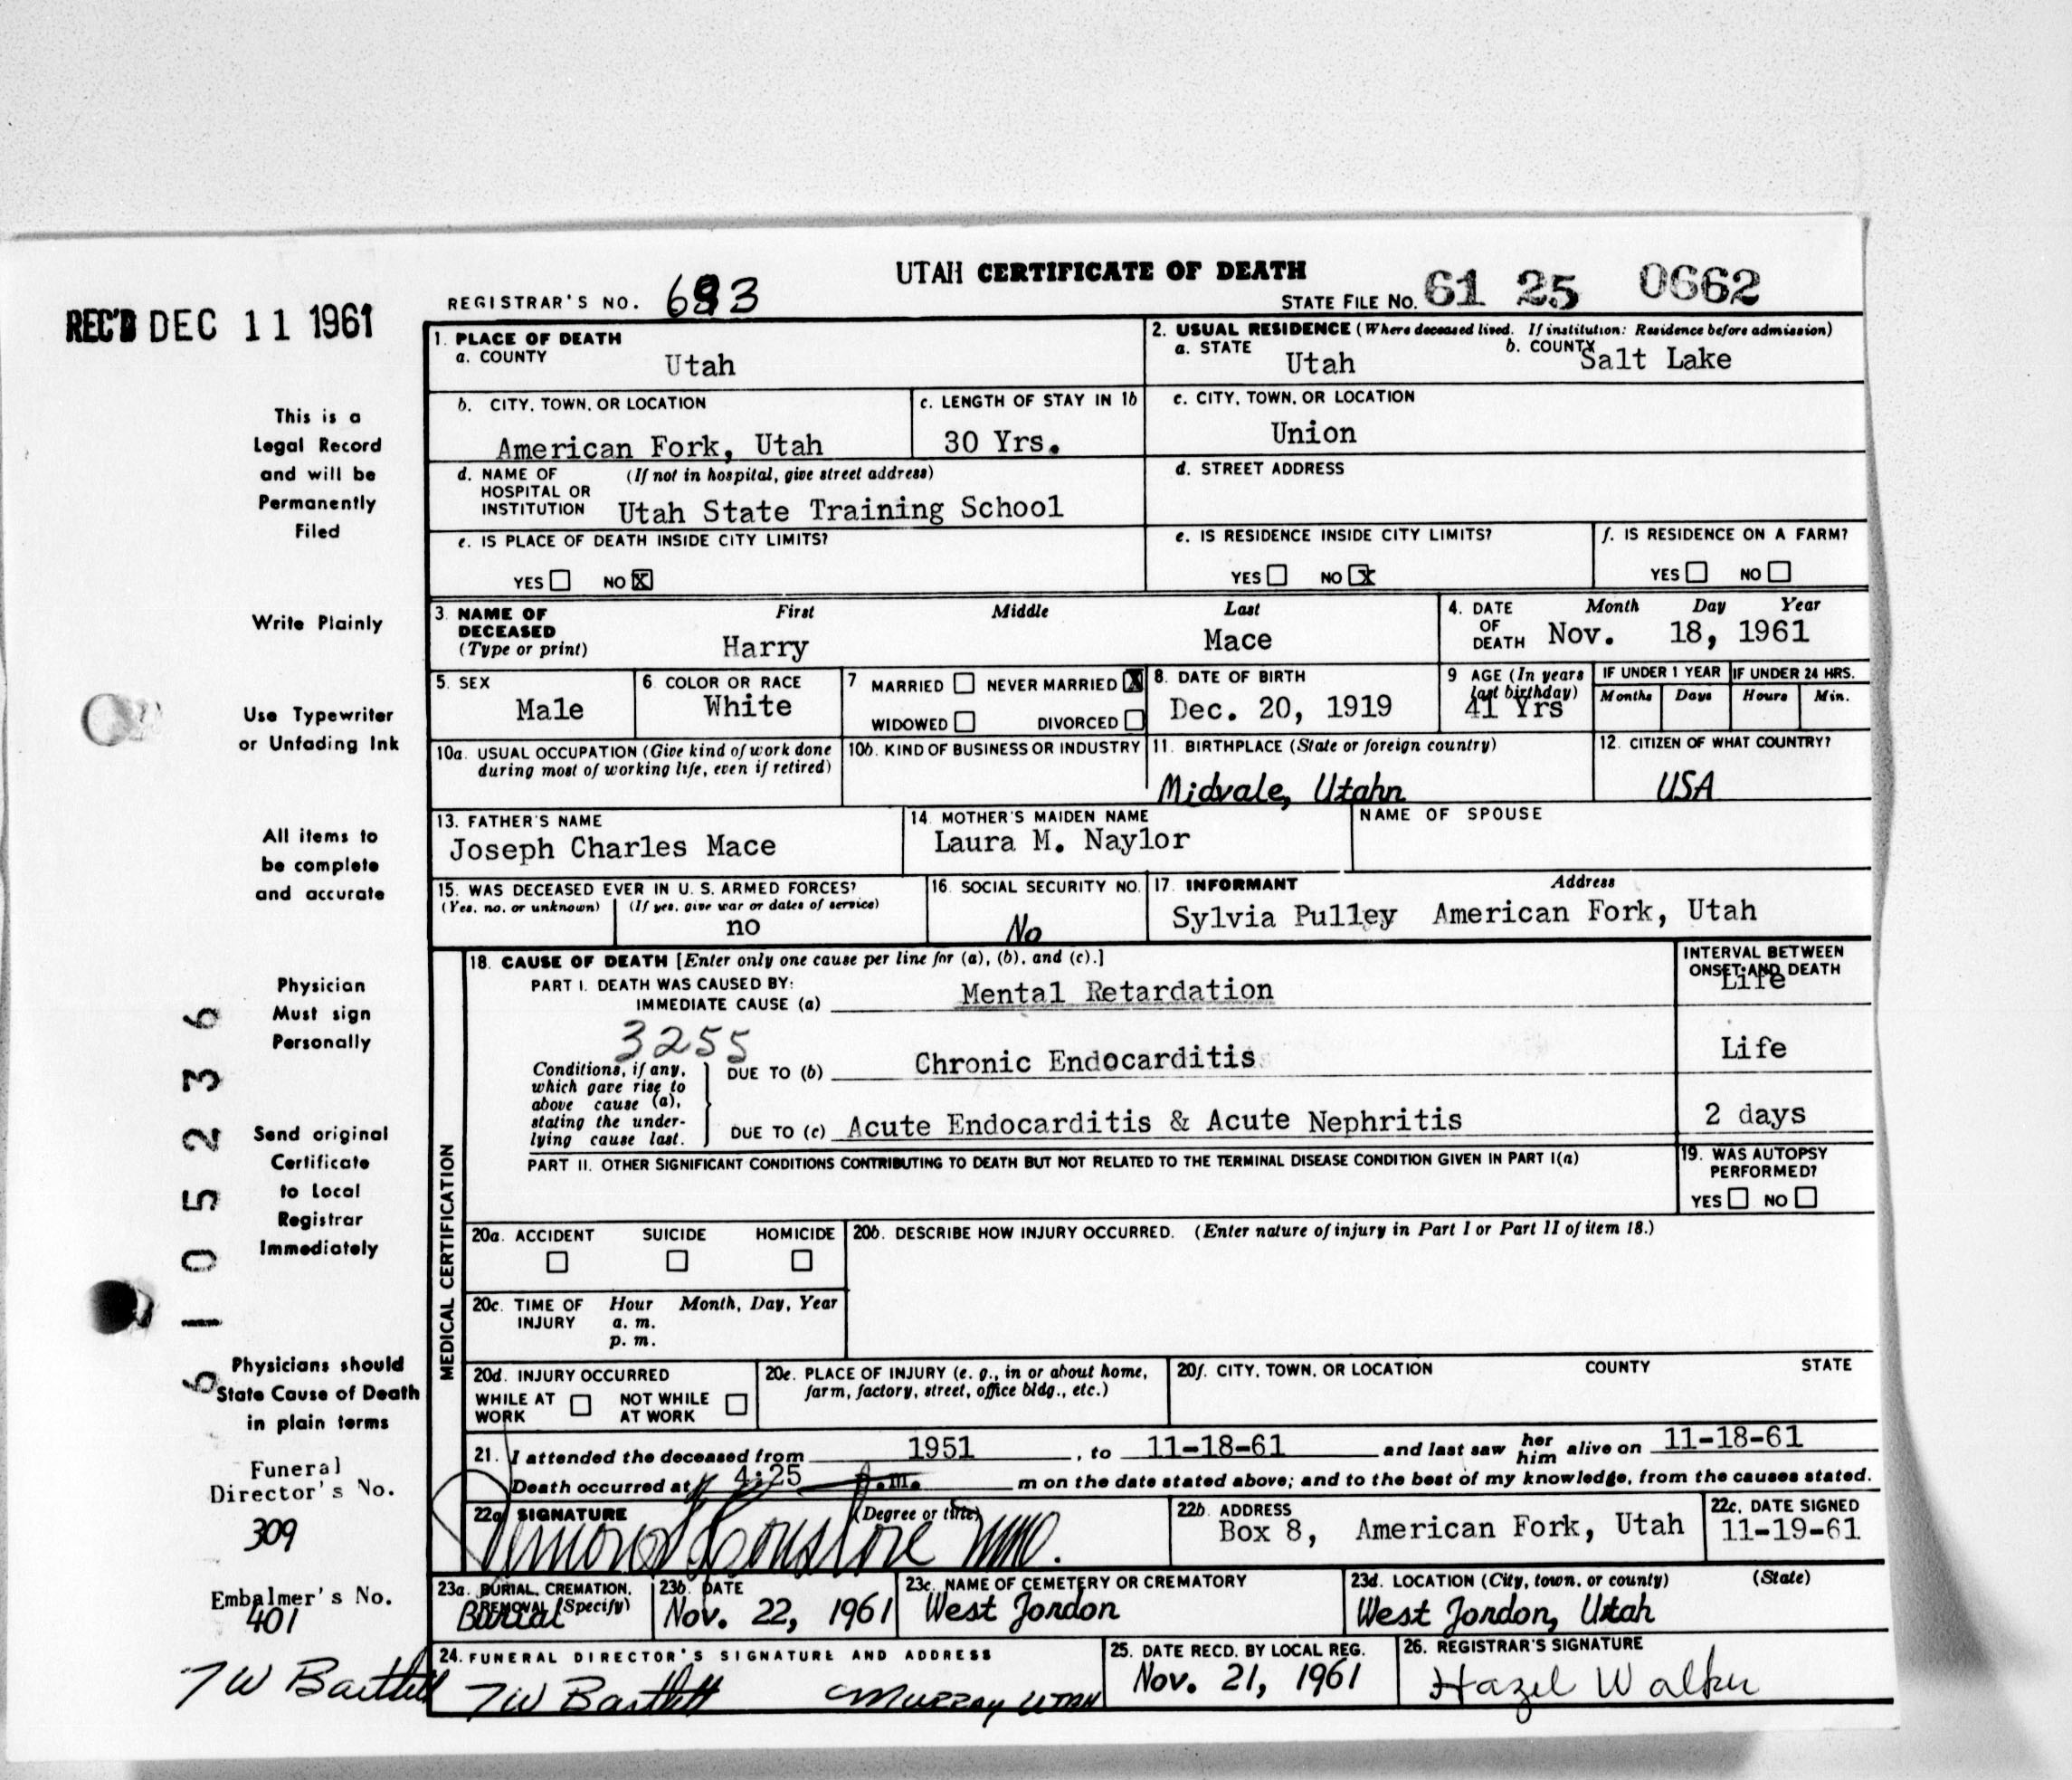 UTAH CERTIFICATE OF DEATH
REGISTRAR'S NO. 683
STATE FILE NO. 61 25 0662
REC'D DEC 11 1961
This is a
Legal Record
and will be
Permanently
Filed
Write Plainly
Use Typewriter
or Unfading Ink
All items to
be complete
and accurate
Physician
Must sign
Personally
Send original
Certificate
to Local
Registrar
Immediately
Physicians should
State Cause of Death
in plain terms
Funeral
Director's No.
309
Embalmer's No.
401
TW Bartlett
6105236
1. PLACE OF DEATH
a. COUNTY Utah
2. USUAL RESIDENCE (Where deceased lived. If institution: Residence before admission)
a. STATE Utah b. COUNTY Salt Lake
b. CITY, TOWN, OR LOCATION American Fork, Utah
c. LENGTH OF STAY IN 1b 30 Yrs.
c. CITY, TOWN, OR LOCATION Union
d. NAME OF HOSPITAL OR INSTITUTION (If not in hospital, give street address) Utah State Training School
d. STREET ADDRESS
e. IS PLACE OF DEATH INSIDE CITY LIMITS?
YES NO X
e. IS RESIDENCE INSIDE CITY LIMITS?
YES NO X
f. IS RESIDENCE ON A FARM?
YES NO
3. NAME OF DECEASED (Type or print) First Middle Last
Harry Mace
4. DATE OF DEATH Month Day Year
Nov. 18, 1961
5. SEX Male
6. COLOR OR RACE White
7 MARRIED NEVER MARRIED X
WIDOWED DIVORCED
8. DATE OF BIRTH Dec. 20, 1919
9 AGE (In years last birthday) 41 Yrs
IF UNDER 1 YEAR Months Days
IF UNDER 24 HRS. Hours Min.
10a. USUAL OCCUPATION (Give kind of work done during most of working life, even if retired)
10b. KIND OF BUSINESS OR INDUSTRY
11. BIRTHPLACE (State or foreign country) Midvale, Utahn
12. CITIZEN OF WHAT COUNTRY? USA
13. FATHER'S NAME Joseph Charles Mace
14. MOTHER'S MAIDEN NAME Laura M. Naylor
NAME OF SPOUSE
15. WAS DECEASED EVER IN U. S. ARMED FORCES?
(Yes, no, or unknown) (If yes, give war or dates of service) no
16. SOCIAL SECURITY NO. No
17. INFORMANT Address
Sylvia Pulley American Fork, Utah
MEDICAL CERTIFICATION
18. CAUSE OF DEATH [Enter only one cause per line for (a), (b), and (c).]
INTERVAL BETWEEN ONSET AND DEATH
PART I. DEATH WAS CAUSED BY:
IMMEDIATE CAUSE (a) Mental Retardation Life
3255
Conditions, if any, which gave rise to above cause (a), stating the underlying cause last.
DUE TO (b) Chronic Endocarditis Life
DUE TO (c) Acute Endocarditis & Acute Nephritis 2 days
PART II. OTHER SIGNIFICANT CONDITIONS CONTRIBUTING TO DEATH BUT NOT RELATED TO THE TERMINAL DISEASE CONDITION GIVEN IN PART I(a)
19. WAS AUTOPSY PERFORMED?
YES NO
20a. ACCIDENT SUICIDE HOMICIDE
20b. DESCRIBE HOW INJURY OCCURRED. (Enter nature of injury in Part I or Part II of item 18.)
20c. TIME OF INJURY Hour Month, Day, Year
a. m.
p. m.
20d. INJURY OCCURRED
WHILE AT WORK NOT WHILE AT WORK
20e. PLACE OF INJURY (e. g., in or about home, farm, factory, street, office bldg., etc.)
20f. CITY, TOWN, OR LOCATION COUNTY STATE
21. I attended the deceased from 1951, to 11-18-61 and last saw her him alive on 11-18-61
Death occurred at 4:25 p.m. m on the date stated above; and to the best of my knowledge, from the causes stated.
22a. SIGNATURE (Degree or title)
22b. ADDRESS Box 8, American Fork, Utah
22c. DATE SIGNED 11-19-61
23a. BURIAL, CREMATION, REMOVAL (Specify) Burial
23b. DATE Nov. 22, 1961
23c. NAME OF CEMETERY OR CREMATORY West Jordon
23d. LOCATION (City, town, or county) (State) West Jordon, Utah
24. FUNERAL DIRECTOR'S SIGNATURE AND ADDRESS
TW Bartlett MURRAY UTAH
25. DATE RECD. BY LOCAL REG. Nov. 21, 1961
26. REGISTRAR'S SIGNATURE Hazel Walker